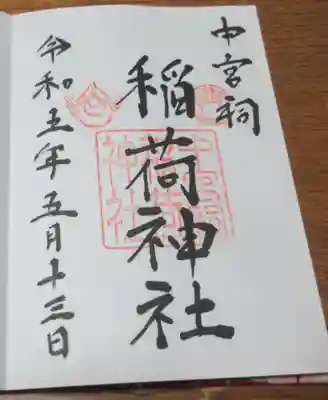 中宮祠
稲荷神社
令和五年五月十三日